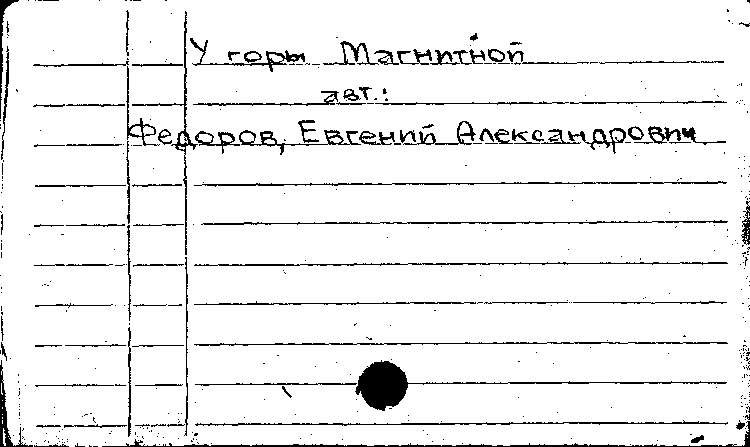 У горы Магнитной
авт.:
Федоров, Евгений Александрович